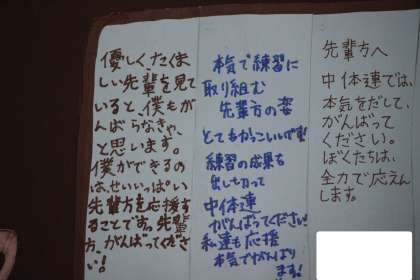 優しく、たくま
しい先輩を見て
いると、僕もが
んばらなきゃ、
と思います。
僕ができるの
は、せいいっぱい
先輩方を応援す
ることです。先輩
方、がんばってくださ
い!
本気で練習に
取り組む
先輩方の姿
とてもかっこいいです!
練習の成果を
出し切って
中体連
がんばってください!
私達も応援
本気でがんばり
ます!
先輩方へ
中体連では、
本気をだして、
がんばって
ください。
ぼくたちは、
全力で応えん
します。